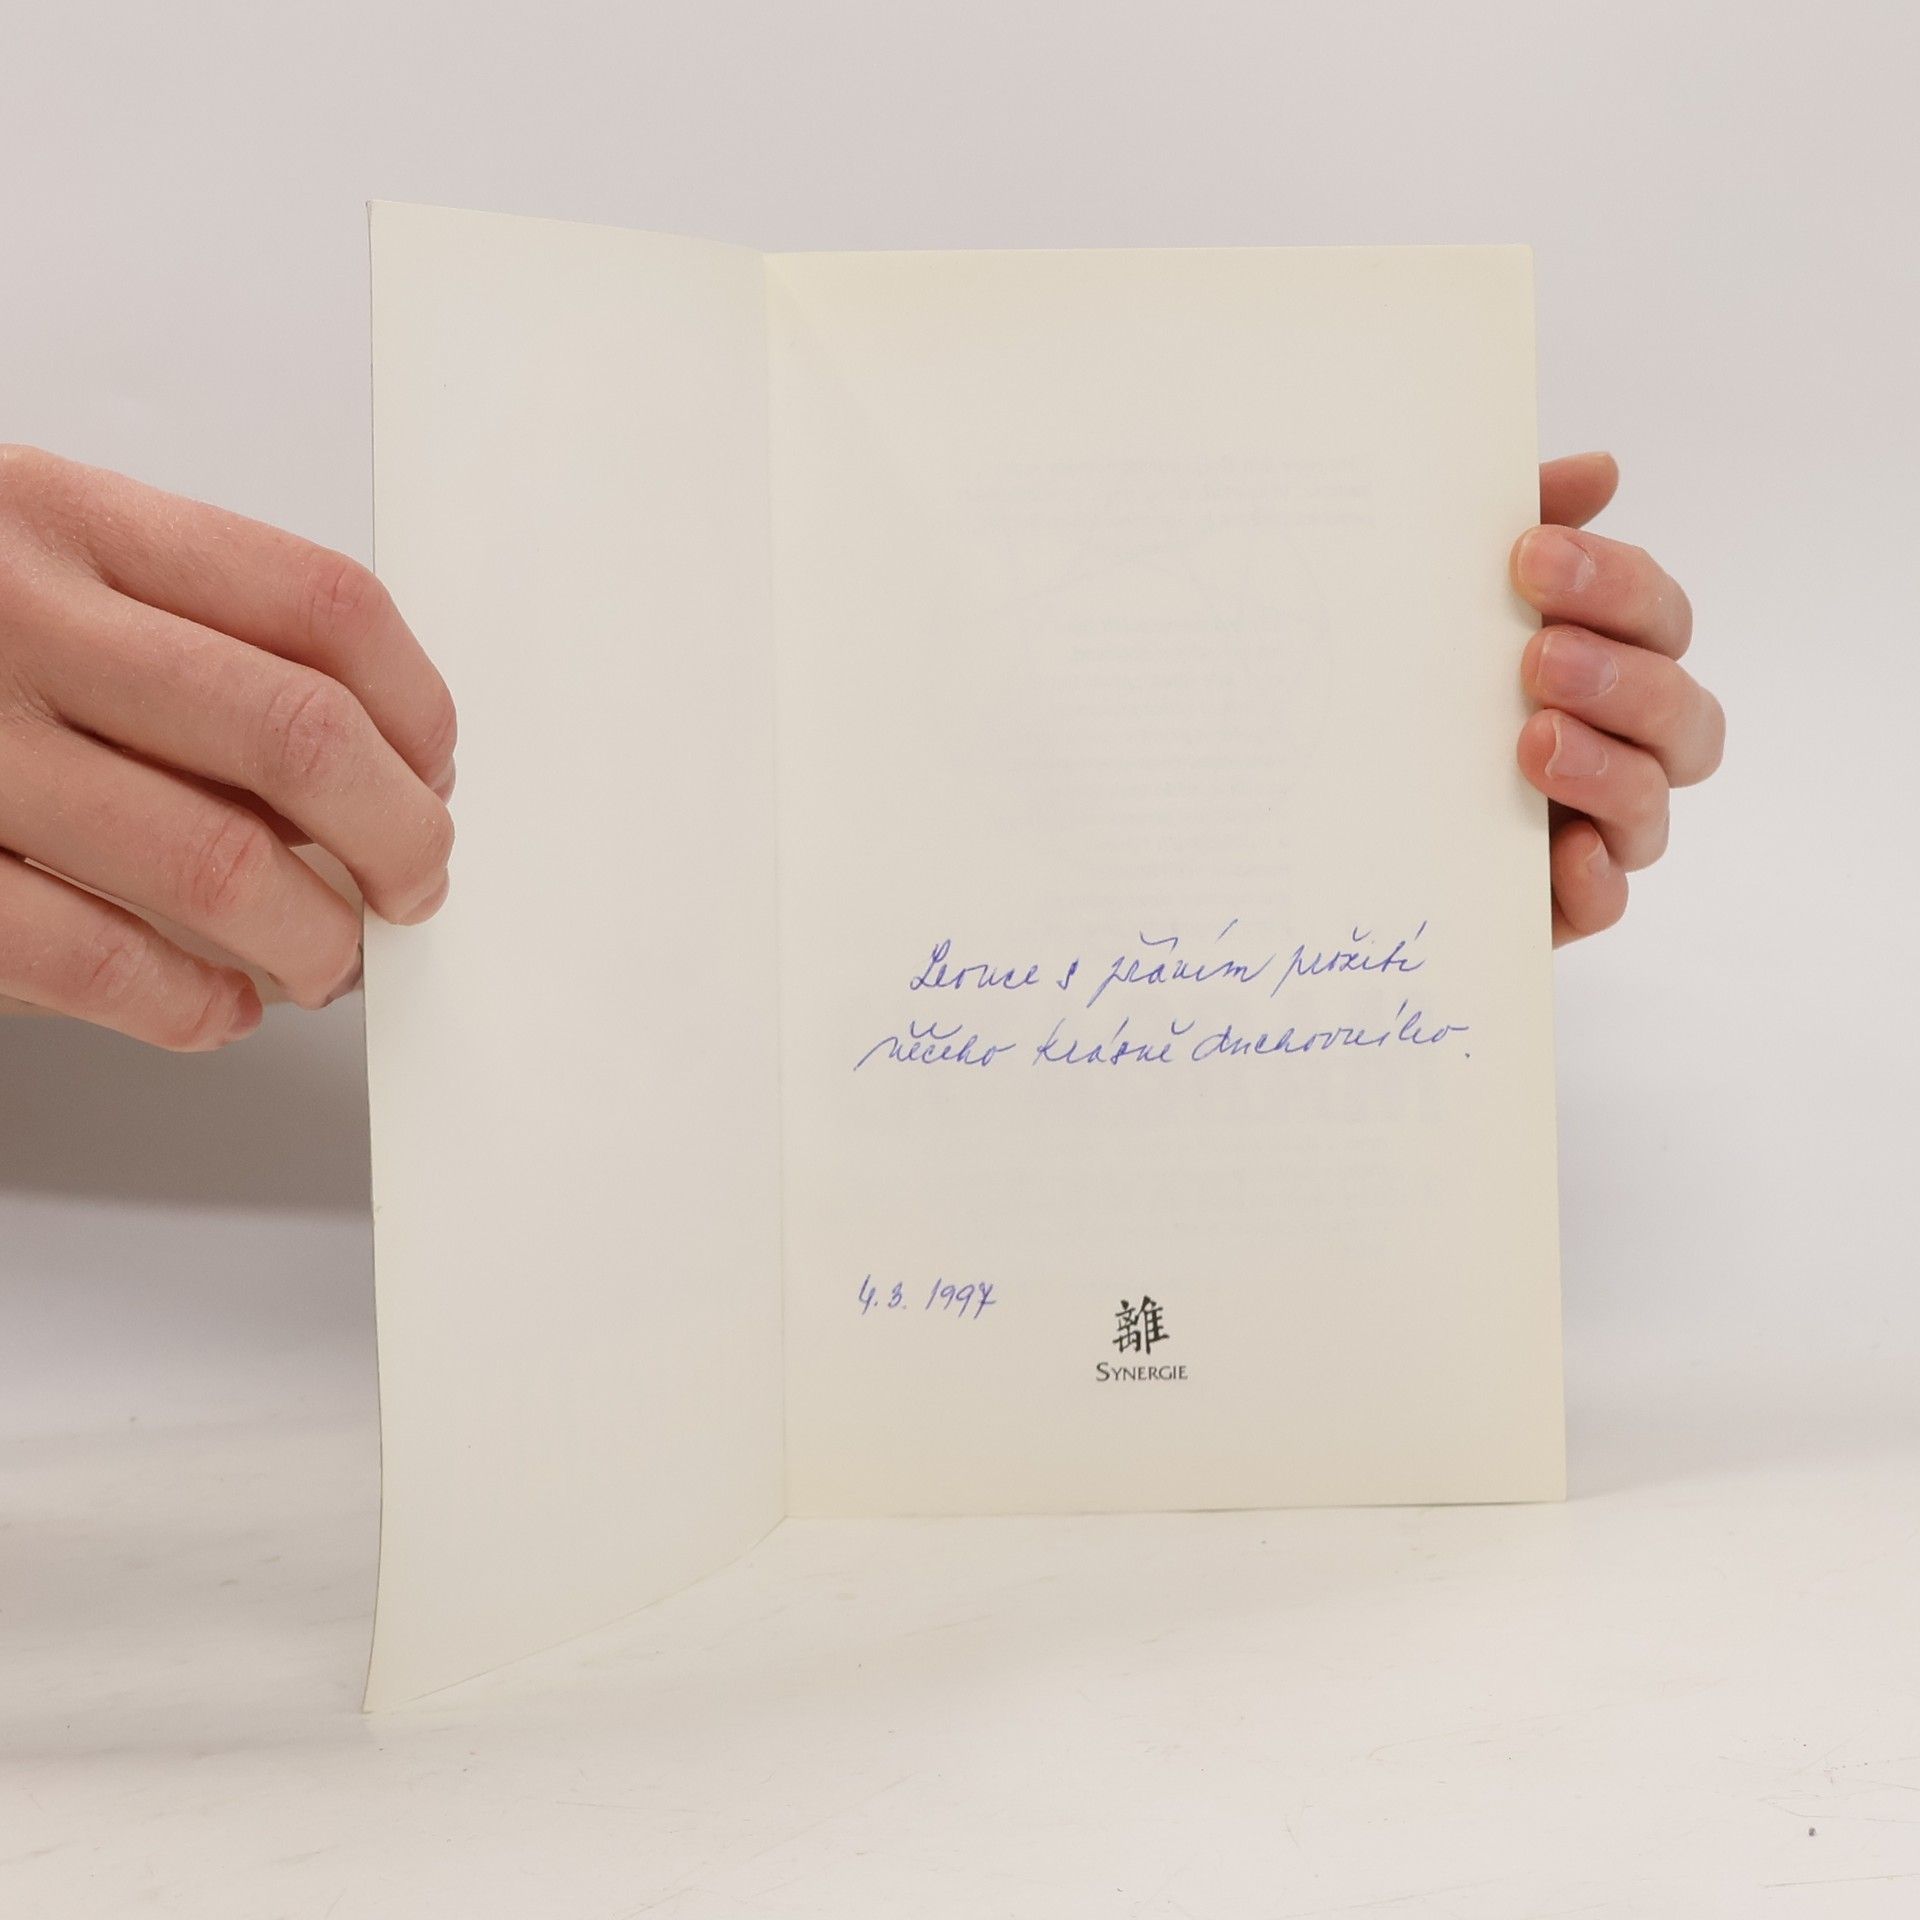 Leonce s přáním prožití
něčeho krásně duchovního.
4.3. 1997
離
SYNERGIE